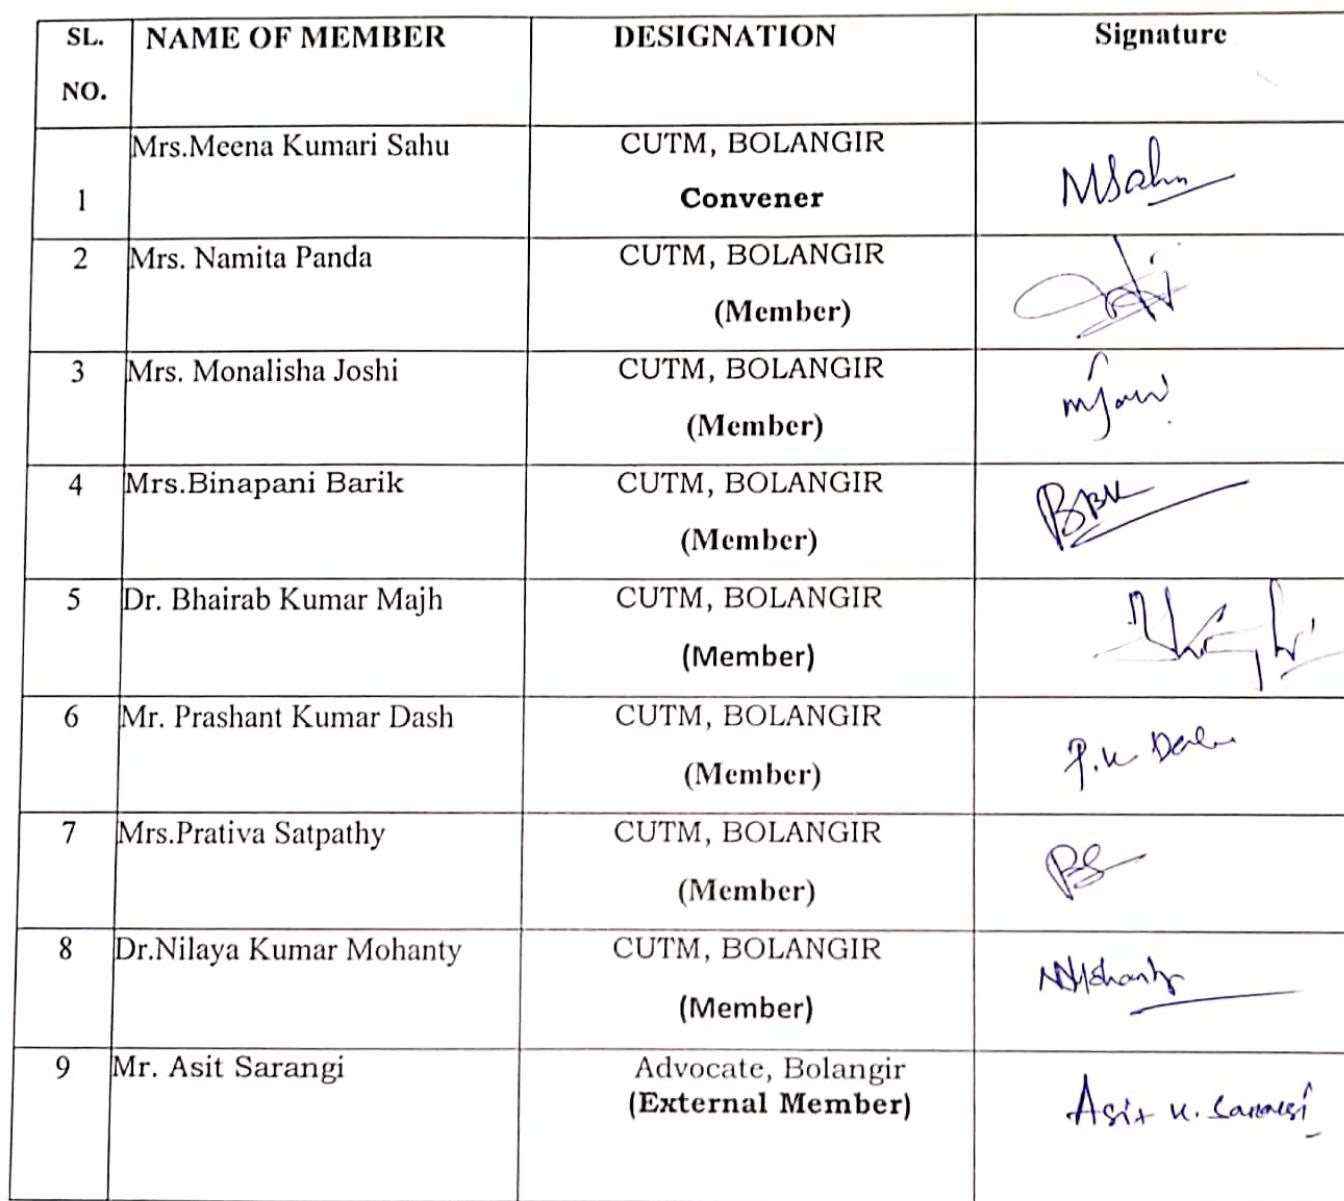 SL. NAME OF MEMBER DESIGNATION Signature
NO.
Mrs.Meena Kumari Sahu CUTM, BOLANGIR
1 Convener MSahu
2 Mrs. Namita Panda CUTM, BOLANGIR
(Member)
3 Mrs. Monalisha Joshi CUTM, BOLANGIR
(Member)
4 Mrs.Binapani Barik CUTM, BOLANGIR
(Member)
5 Dr. Bhairab Kumar Majh CUTM, BOLANGIR
(Member)
6 Mr. Prashant Kumar Dash CUTM, BOLANGIR
(Member) P.K Dash
7 Mrs.Prativa Satpathy CUTM, BOLANGIR
(Member) PS
8 Dr.Nilaya Kumar Mohanty CUTM, BOLANGIR
(Member) NMohanty
9 Mr. Asit Sarangi Advocate, Bolangir
(External Member) Asit K. Sarangi